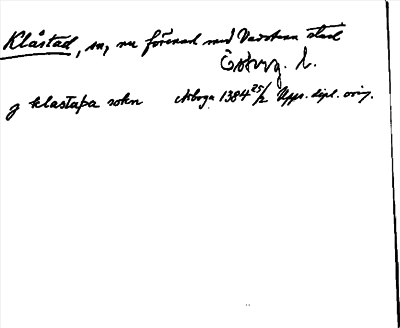 Klåstad, sn, nu förenad med Vadstena stad
Österg. l.
j klastaþa sokn Arboga 1384 25/2 Upps. dipl. orig.